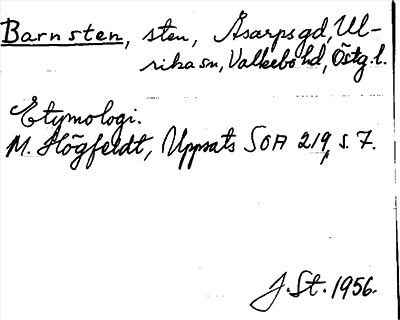 Barnsten, sten, Åsarpsgd, Ul-
rika sn, Valkebo hd, Östg. l.
Etymologi.
M. Högfeldt, Uppsats SOA 219, s. 7.
J. St. 1956.